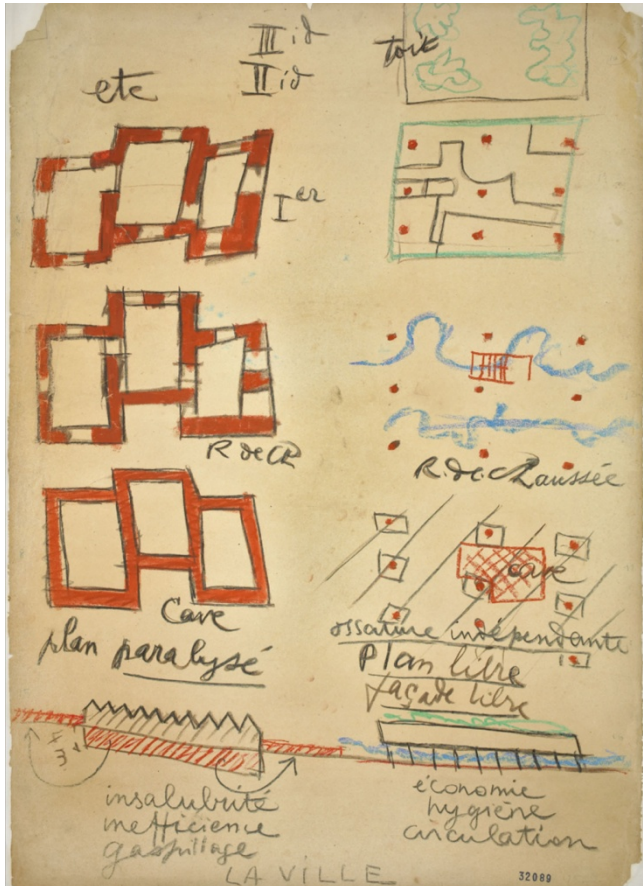 etc
III id
II id
toit
I er
R de Ch
R. de. Chaussée
Cave
cave
plan paralysé
ossature indépendante
Plan libre
façade libre
insalubrité
inefficience
gaspillage
économie
hygiène
circulation
LA VILLE
32089